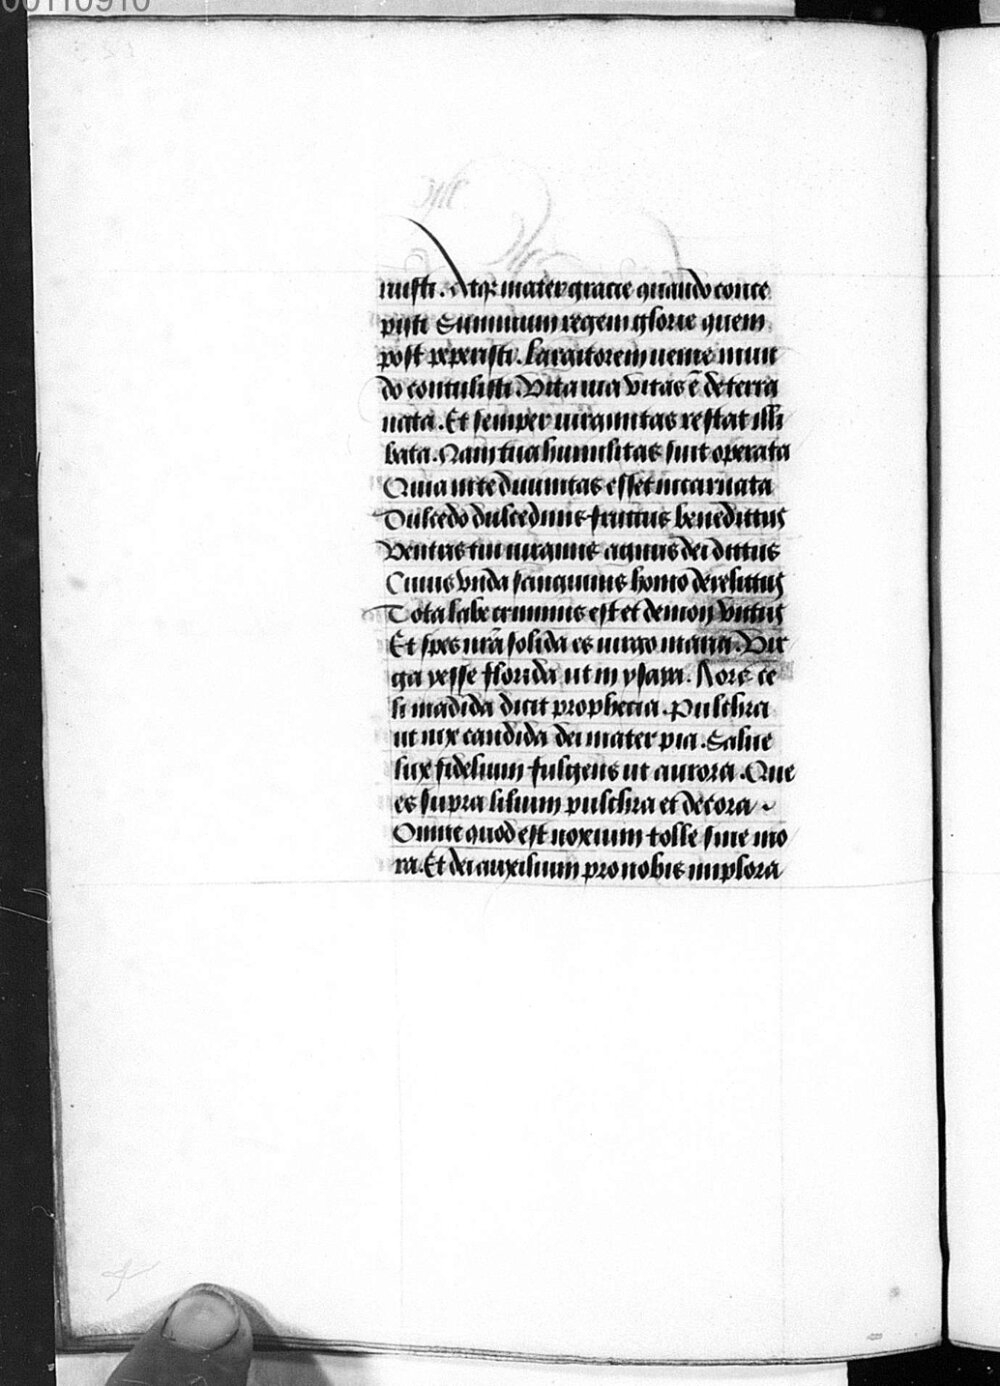 00110910
nisti. Atqꝫ mater gracie quando conce
pisti Summum regem glorie quem
post peperisti. Largitorem venie mun
do contulisti. Vita uia vitas ē de terra
nata. Et semper uirginitas restat illi
bata. Nam tua humilitas fuit operata
Quia in te diuinitas esset incarnata
Dulcedo dulcedinis fructus benedictus
Ventris tui uirginis agnus dei dictus
Cuius vnda sanguinis homo derelictus
Tota labe criminis est et demon victus
Et spes nr̄a solida es uirgo maria. Vir
ga yesse florida ut in ysaya. Rore ce
li madida dicit prophecia. Pulchra
ut nix candida dei mater pia. Salue
lux fidelium fulgens ut aurora. Que
es supra lilium pulchra et decora
Omne quod est noxium tolle sine mo
ra. Et dei auxilium pro nobis implora